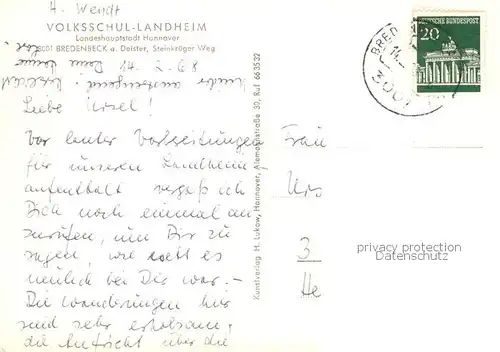 H. Wendt
VOLKSSCHUL-LANDHEIM
Landeshauptstadt Hannover
3001 BREDENBECK a. Deister, Steinkrüger Weg
Den 14. 2. 68
Liebe Ursel!
Vor lauter Vorbereitungen
für unseren Landheim-
aufenthalt vergaß ich
Dich noch einmal an
zurufen, um Dir zu
sagen, wie nett es
neulich bei Dir war. -
Die Wanderungen hier
sind sehr erholsam,
die Aufsicht über die
Kunstverlag H. Lukow, Hannover, Alemannstraße 30, Ruf 66 35 32
BREDEN
14.
3001
DEUTSCHE BUNDESPOST
20
Frau
Urs
3
He
privacy protection
Datenschutz